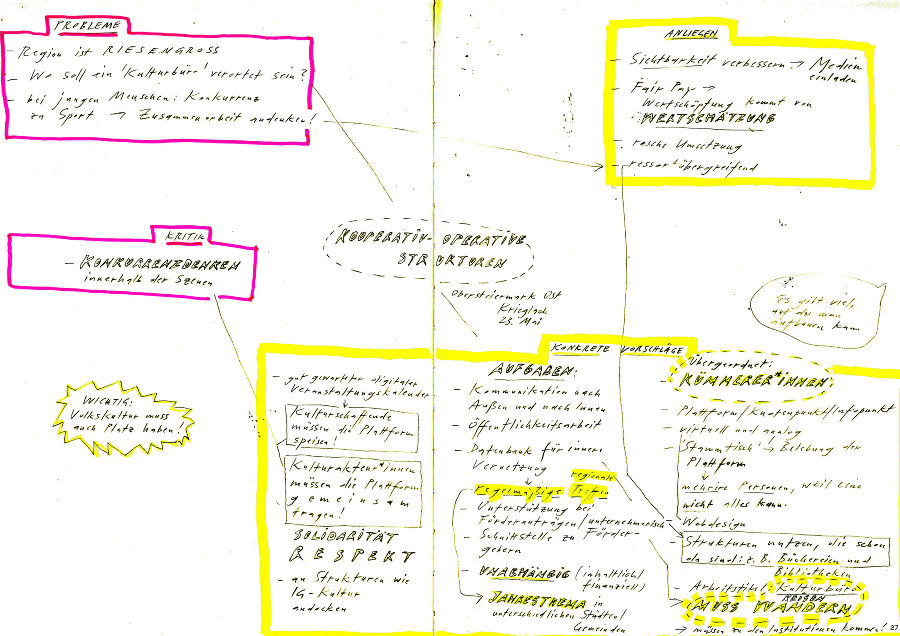 PROBLEME
- Region ist RIESENGROSS
- Wo soll ein 'Kulturbüro' verortet sein?
- bei jungen Menschen: Konkurrenz
zu Sport → Zusammenarbeit andenken!
ANLIEGEN
- Sichtbarkeit verbessern → Medien
einladen
- Fair Pay →
Wertschöpfung kommt von
WERTSCHÄTZUNG
- rasche Umsetzung
- ressortübergreifend
KRITIK
- KONKURRENZDENKEN
innerhalb der Szenen
KOOPERATIV-OPERATIVE
STRUKTUREN
Obersteiermark Ost
Krieglach
23. Mai
Es gibt viel,
auf das man
aufbauen kann
WICHTIG:
Volkskultur muss
auch Platz haben!
KONKRETE VORSCHLÄGE
- gut gewarteter digitaler
Veranstaltungskalender
Kulturschaffende
müssen die Plattform
speisen!
Kulturakteur*innen
müssen die Plattform
gemeinsam
tragen!
SOLIDARITÄT
RESPEKT
- an Strukturen wie
IG-Kultur
andocken
AUFGABEN:
- Kommunikation nach
Außen und nach Innen
- Öffentlichkeitsarbeit
- Datenbank für innere
Vernetzung
regionale
regelmäßige Treffen
- Unterstützung bei
Förderanträgen/unternehmerisch
- Schnittstelle zu Förder-
gebern
- UNABHÄNGIG (inhaltlich/
finanziell)
JAHRESTHEMA in
unterschiedlichen Städten/
Gemeinden
Übergeordnet:
KÜMMERER*INNEN:
- Plattform/Knotenpunkt/Infopunkt
- virtuell und analog
- 'Stammtisch' → Belebung der
Plattform
mehrere Personen, weil eine
nicht alles kann.
- Webdesign
- Strukturen nutzen, die schon
da sind: z.B. Büchereien und
Bibliotheken
- Arbeitstitel: Kulturbüro
REISEN
MUSS WANDERN!
→ müssen zu den Institutionen kommen!
27